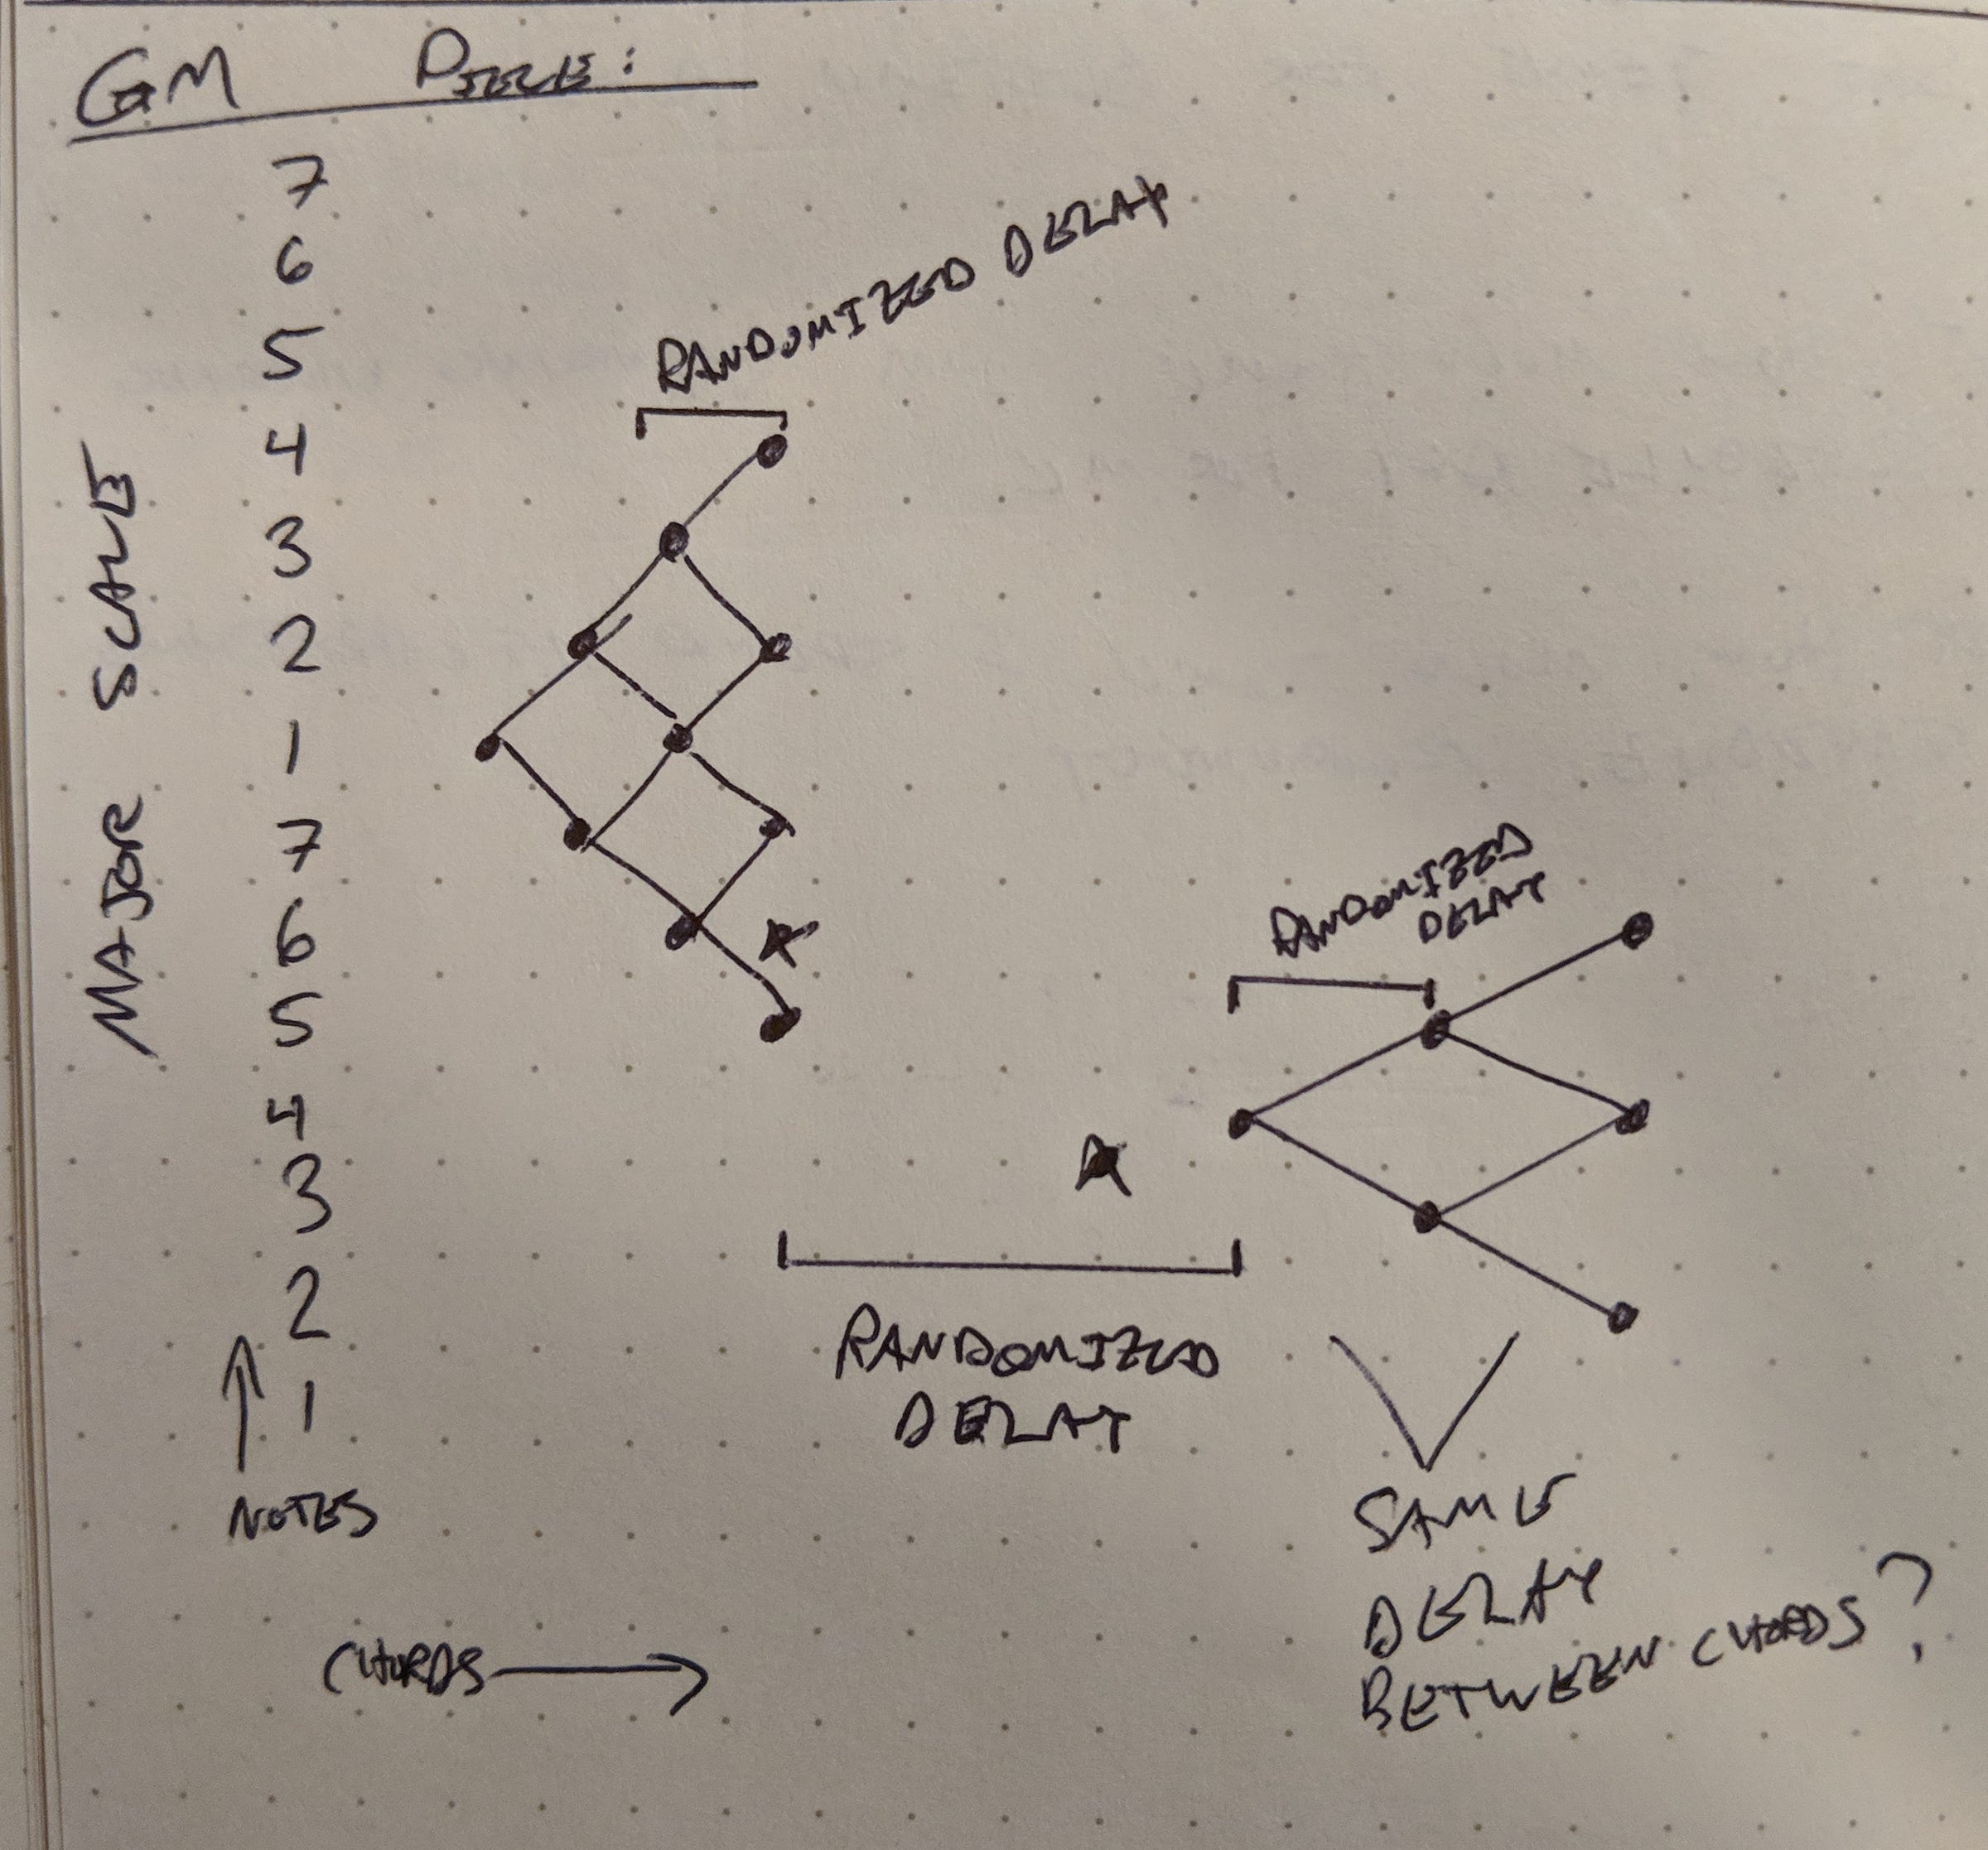 GM PIECE:
7
6
5
4
3
2
1
7
6
5
4
3
2
1
MAJOR SCALE
NOTES
CHORDS
RANDOMIZED DELAY
RANDOMIZED
DELAY
RANDOMIZED
DELAY
SAME
DELAY
BETWEEN CHORDS?